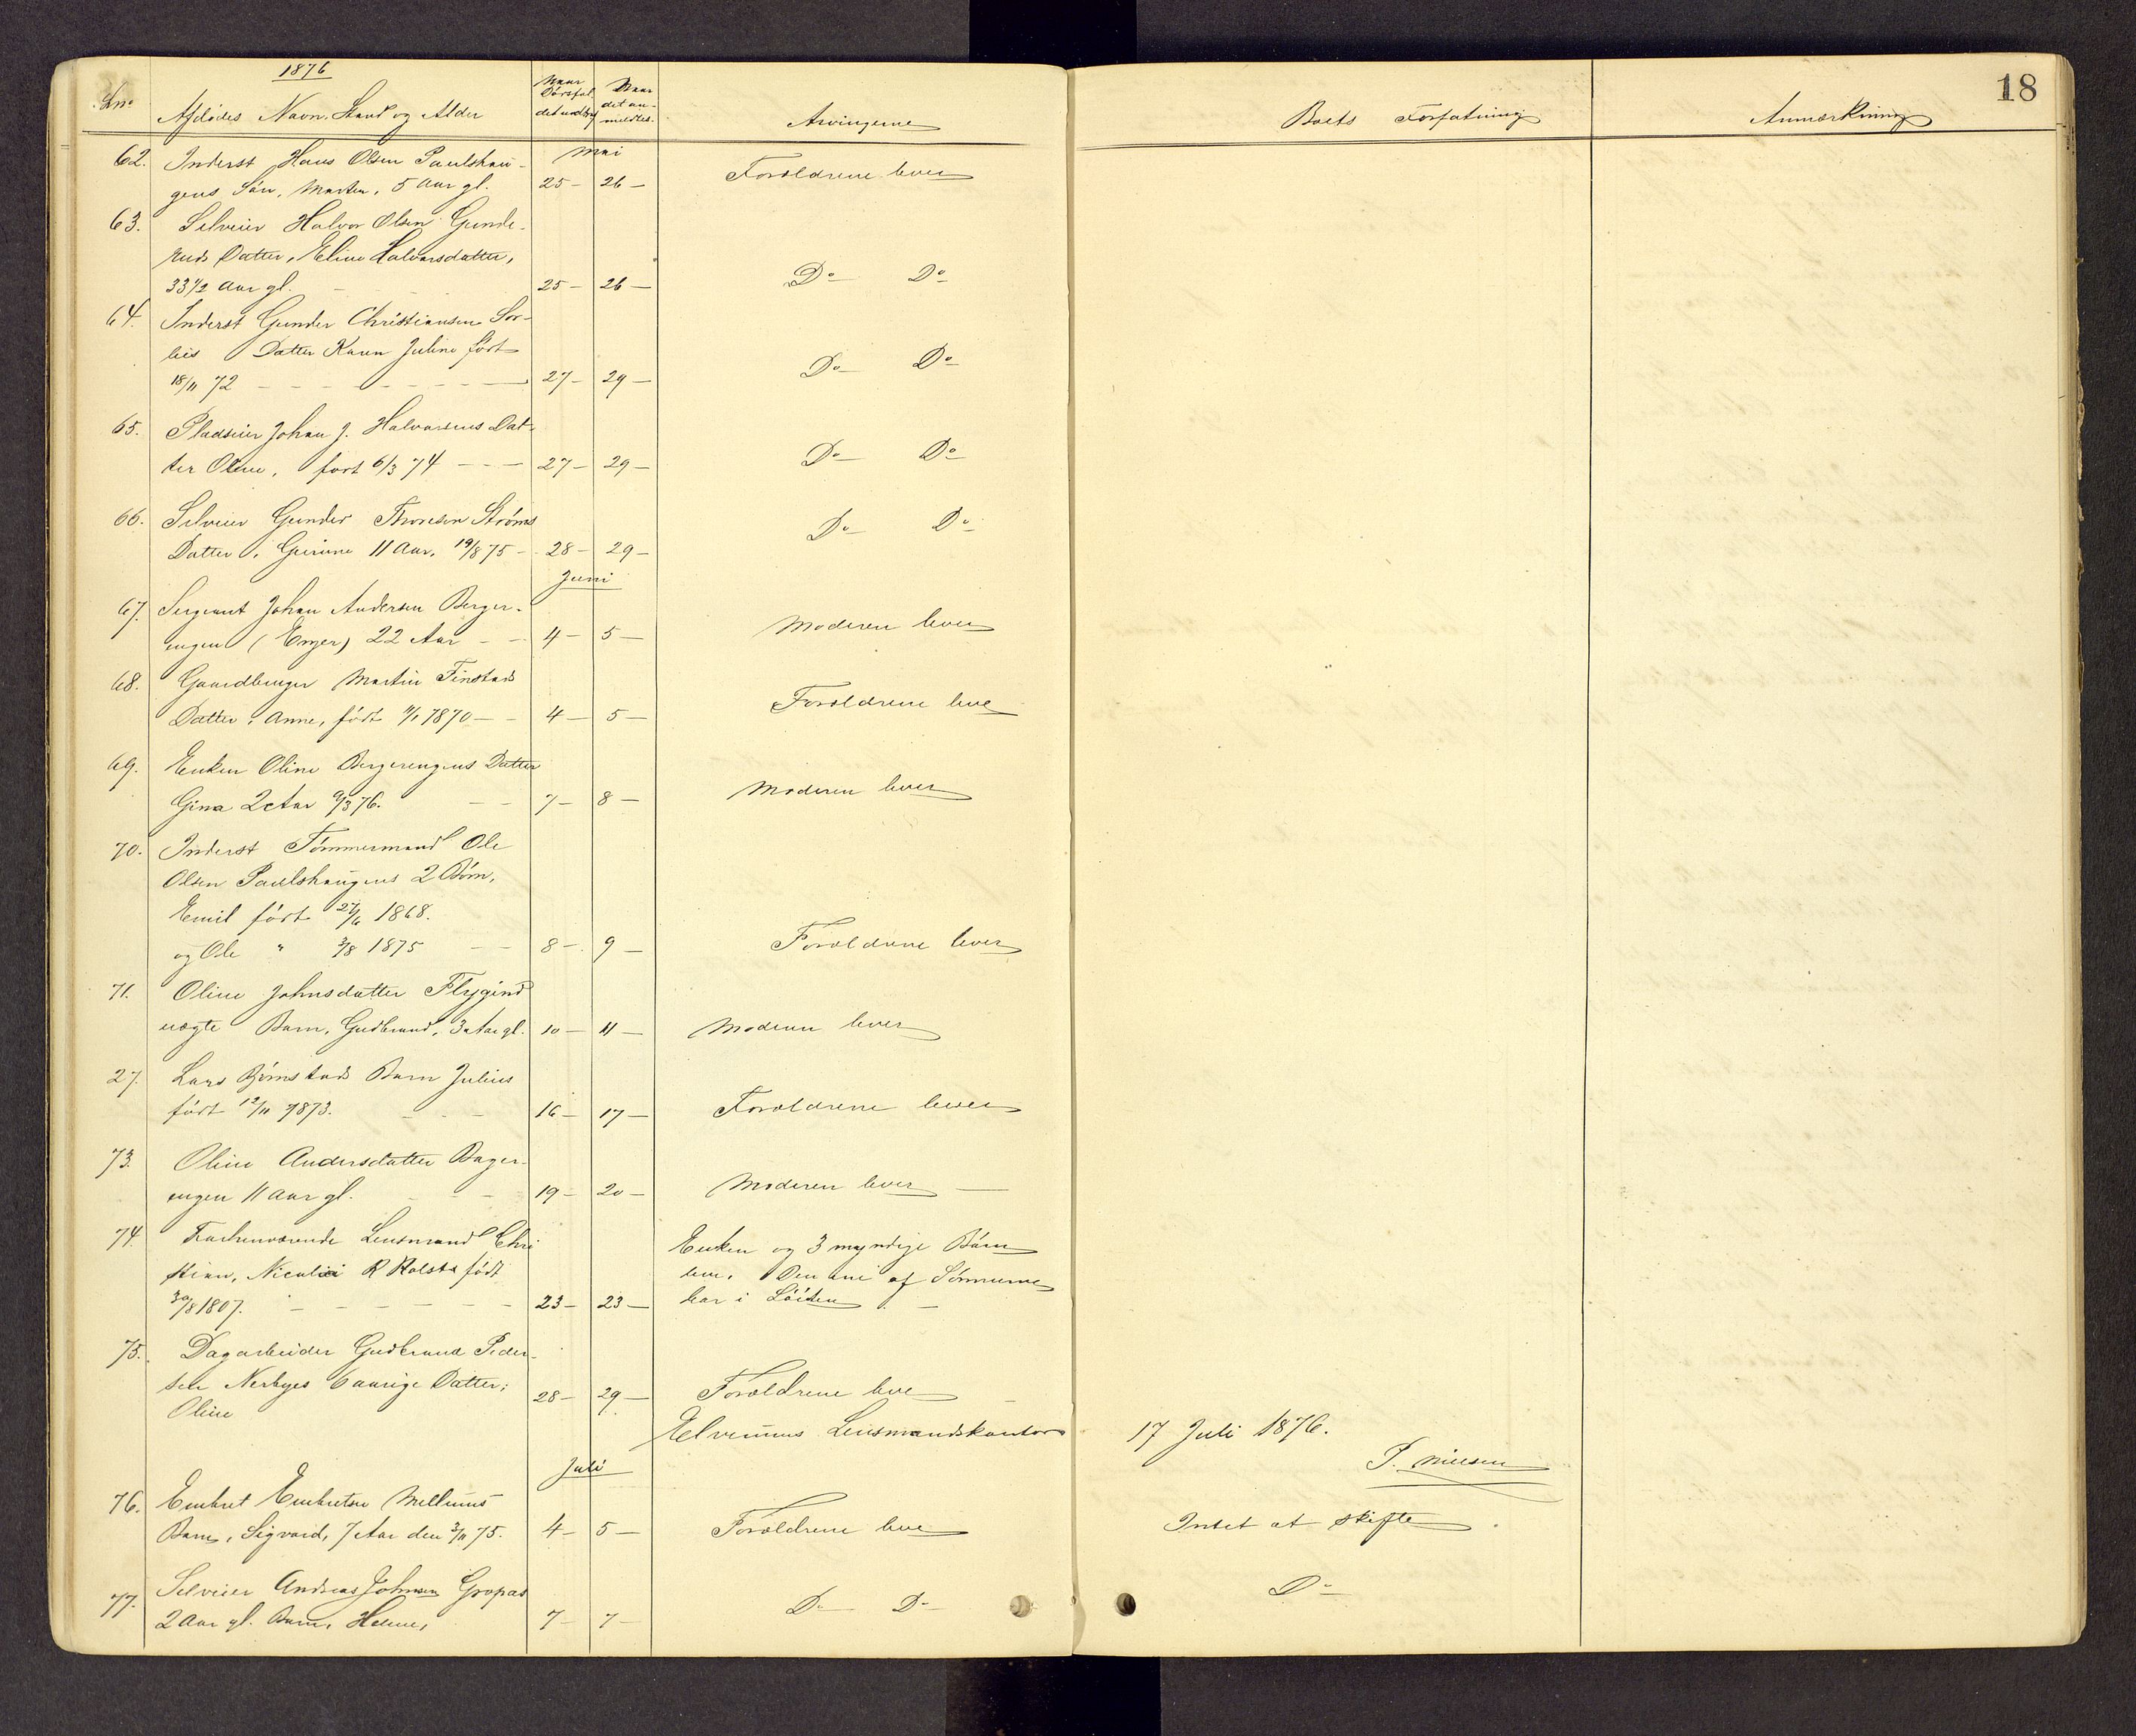 18
1876
Lno
Afdødes Navn, Stand og Alder
Naar Dødsfaldet indtraf
Naar det anmeldtes
Arvingerne
Boets Forfatning
Anmærkning
Mai
62. Inderst Hans Olsen Paulshau-
gens Søn, Martin, 5 Aar gl. 25 - 26 - Forældrene lever
63. Selveier Halvor Olsen Gunde-
ruds Datter, Eline Halvorsdatter,
33 1/2 Aar gl. - 25 - 26 - Do - Do -
64. Inderst Gunder Christiansen Sor-
lies Datter Karen Juline født
18/11 72 - - - 27 - 29 - Do - Do -
65. Pladseier Johan J. Halvorsens Dat-
ter Oline, født 6/3 74 - - - 27 - 29 - Do - Do -
66. Selveier Gunder Thoresen Strøms
Datter, Gurine 11 Aar, 19/8 75 - 28 - 29 - Do - Do -
Juni
67. Sergeant Johan Andersen Berger-
engen (Enger) 22 Aar - - 4 - 5 - Moderen lever
68. Gaardbruger Martin Finstads
Datter, Anne, født 11/1 1870 - - 4 - 5 - Forældrene leve
69. Enken Oline Bergerengens Datter
Gina 2 Aar 9/3 76. - - 7 - 8 - Moderen lever
70. Inderst Tømmermand Ole
Olsen Paulshaugens 2 Børn,
Emil født 27/6 1868.
og Ole " 3/8 1875 - - 8 - 9 - Forældrene lever
71. Oline Johnsdatter Flygind
uægte Barn, Gudbrand, 3 Aar gl. 10 - 11 - Moderen lever
27. Lars Bjørnstads Barn Julius
født 12/11 1873. - - - 16 - 17 - Forældrene lever
73. Oline Andersdatter Berger-
engen 11 Aar gl. - - - 19 - 20 - Moderen lever -
74. Forhenværende Lensmand Chri
stian, Nicolai R Holst født
30/8 1807. - - - 23 - 23 -
Enken og 3 myndige Børn
leve. Den ene af Sønnerne
bor i Løiten -
75. Dagarbeider Gudbrand Peder-
sen Nerbyes 6 aarige Datter;
Oline 28 - 29 - Forældrene leve -
Elverums Lensmandskontor 17 Juli 1876.
P. Nielsen
Juli
76. Embret Embretsen Mellums
Barn, Sigvard, 7 Aar den 3/11 75. 4 - 5 - Forældrene leve Intet at skifte.
77. Selveier Andreas Johnsen Gropas
2 Aar gl. Barn, Helene, 7 - 7 - Do - Do - Do -